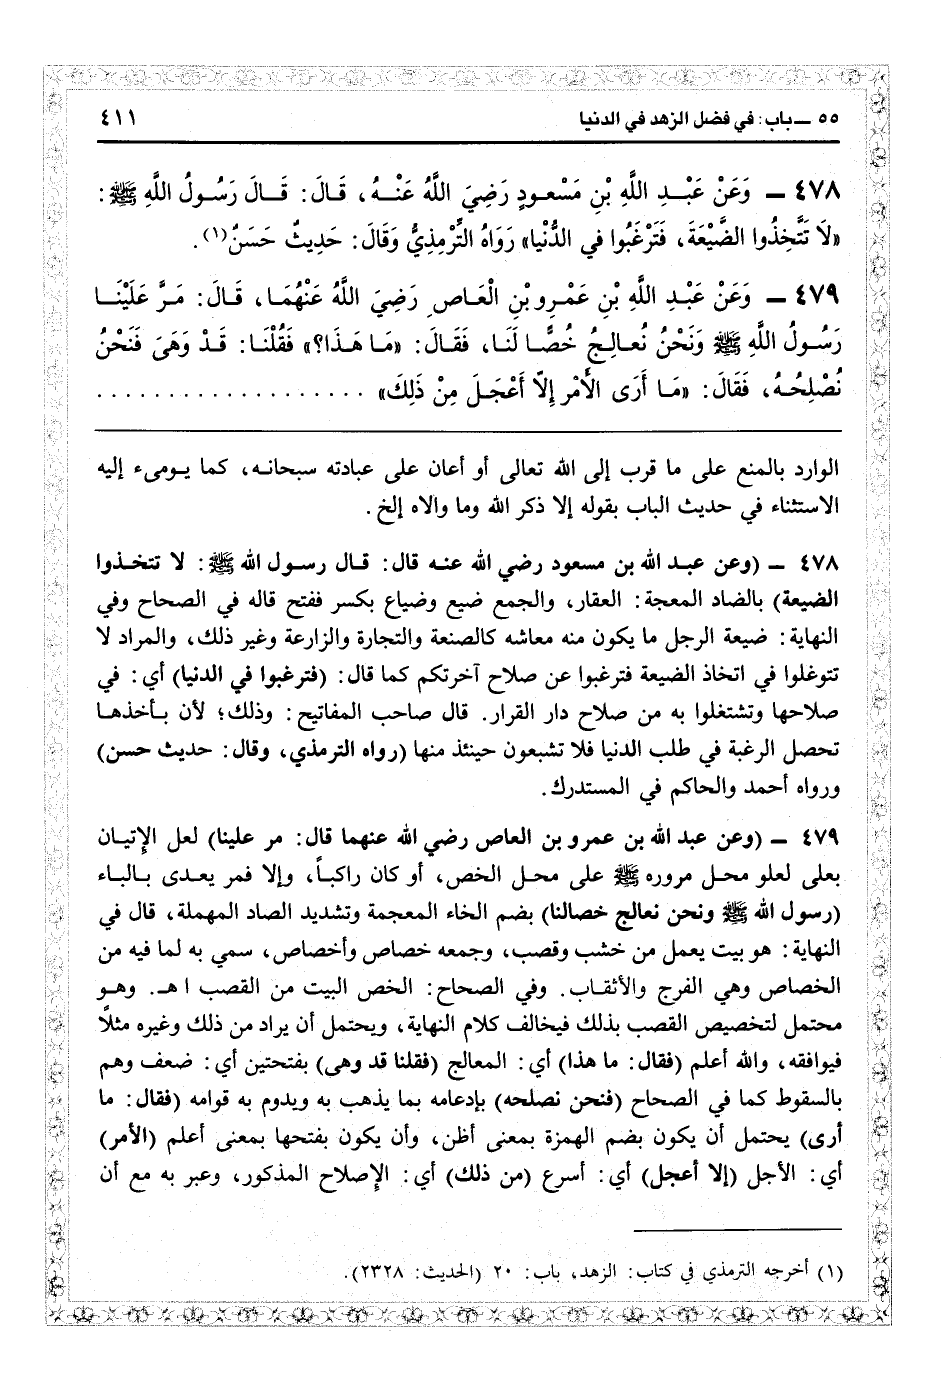 ٥٥ ــ باب: في فضل الزهد في الدنيا ٤١١
٤٧٨ ــ وَعَنْ عَبْـدِ اللَّهِ بْنِ مَسْعـودٍ رَضِيَ اللَّهُ عَنْـهُ، قَالَ: قَـالَ رَسُـولُ اللَّهِ ﷺ:
«لَا تَتَّخِذُوا الضَّيْعَةَ، فَتَرْغَبُوا في الدُّنْيا» رَوَاهُ التِّرْمِذِيُّ وَقَالَ: حَدِيثٌ حَسَنٌ(١).
٤٧٩ ــ وَعَنْ عَبْـدِ اللَّهِ بْنِ عَمْـرِو بْنِ الْعَـاصِ رَضِيَ اللَّهُ عَنْهُمَـا، قَـالَ: مَـرَّ عَلَيْنَـا
رَسُـولُ اللَّهِ ﷺ وَنَحْنُ نُعـالِـجُ خُصًّـا لَنَـا، فَقَـالَ: «مَـا هَـذَا؟» فَقُلْنَـا: قَـدْ وَهَىٰ فَنَحْنُ
نُصْلِحُـهُ، فَقَالَ: «مَـا أَرَى الْأَمْرَ إِلَّا أَعْجَـلَ مِنْ ذَلِكَ» . . . . . . . . . . . . . . . . . . .
الوارد بالمنع على ما قرب إلى الله تعالى أو أعان على عبادته سبحانـه، كما يـومىء إليه
الاستثناء في حديث الباب بقوله إلا ذكر الله وما والاه إلخ.
٤٧٨ ــ (وعن عبـد الله بن مسعود رضي الله عنـه قال: قـال رسـول الله ﷺ: لا تتخـذوا
الضيعة) بالضاد المعجة: العقار، والجمع ضيع وضياع بكسر ففتح قاله في الصحاح وفي
النهاية: ضيعة الرجل ما يكون منه معاشه كالصنعة والتجارة والزارعة وغير ذلك، والمراد لا
تتوغلوا في اتخاذ الضيعة فترغبوا عن صلاح آخرتكم كما قال: (فترغبوا في الدنيا) أي: في
صلاحها وتشتغلوا به من صلاح دار القرار. قال صاحب المفاتيح: وذلك؛ لأن بـأخذهـا
تحصل الرغبة في طلب الدنيا فلا تشبعون حينئذ منها (رواه الترمذي، وقال: حديث حسن)
ورواه أحمد والحاكم في المستدرك.
٤٧٩ ــ (وعن عبد الله بن عمرو بن العاص رضي الله عنهما قال: مر علينا) لعل الإتيـان
بعلى لعلو محـل مروره ﷺ على محـل الخص، أو كان راكبـاً، وإلا فمر يعـدى بـالبـاء
(رسول الله ﷺ ونحن نعالج خصالنا) بضم الخاء المعجمة وتشديد الصاد المهملة، قال في
النهاية: هو بيت يعمل من خشب وقصب، وجمعه خصاص وأخصاص، سمي به لما فيه من
الخصاص وهي الفرج والأثقـاب. وفي الصحاح: الخص البيت من القصب ا هـ. وهـو
محتمل لتخصيص القصب بذلك فيخالف كلام النهاية، ويحتمل أن يراد من ذلك وغيره مثلاً
فيوافقه، والله أعلم (فقال: ما هذا) أي: المعالج (فقلنا قد وهى) بفتحتين أي: ضعف وهم
بالسقوط كما في الصحاح (فنحن نصلحه) بإدعامه بما يذهب به ويدوم به قوامه (فقال: ما
أرى) يحتمل أن يكون بضم الهمزة بمعنى أظن، وأن يكون بفتحها بمعنى أعلم (الأمر)
أي: الأجل (إلا أعجل) أي: أسرع (من ذلك) أي: الإصلاح المذكور، وعبر به مع أن
(١) أخرجه الترمذي في كتاب: الزهد، باب: ٢٠ (الحديث: ٢٣٢٨).